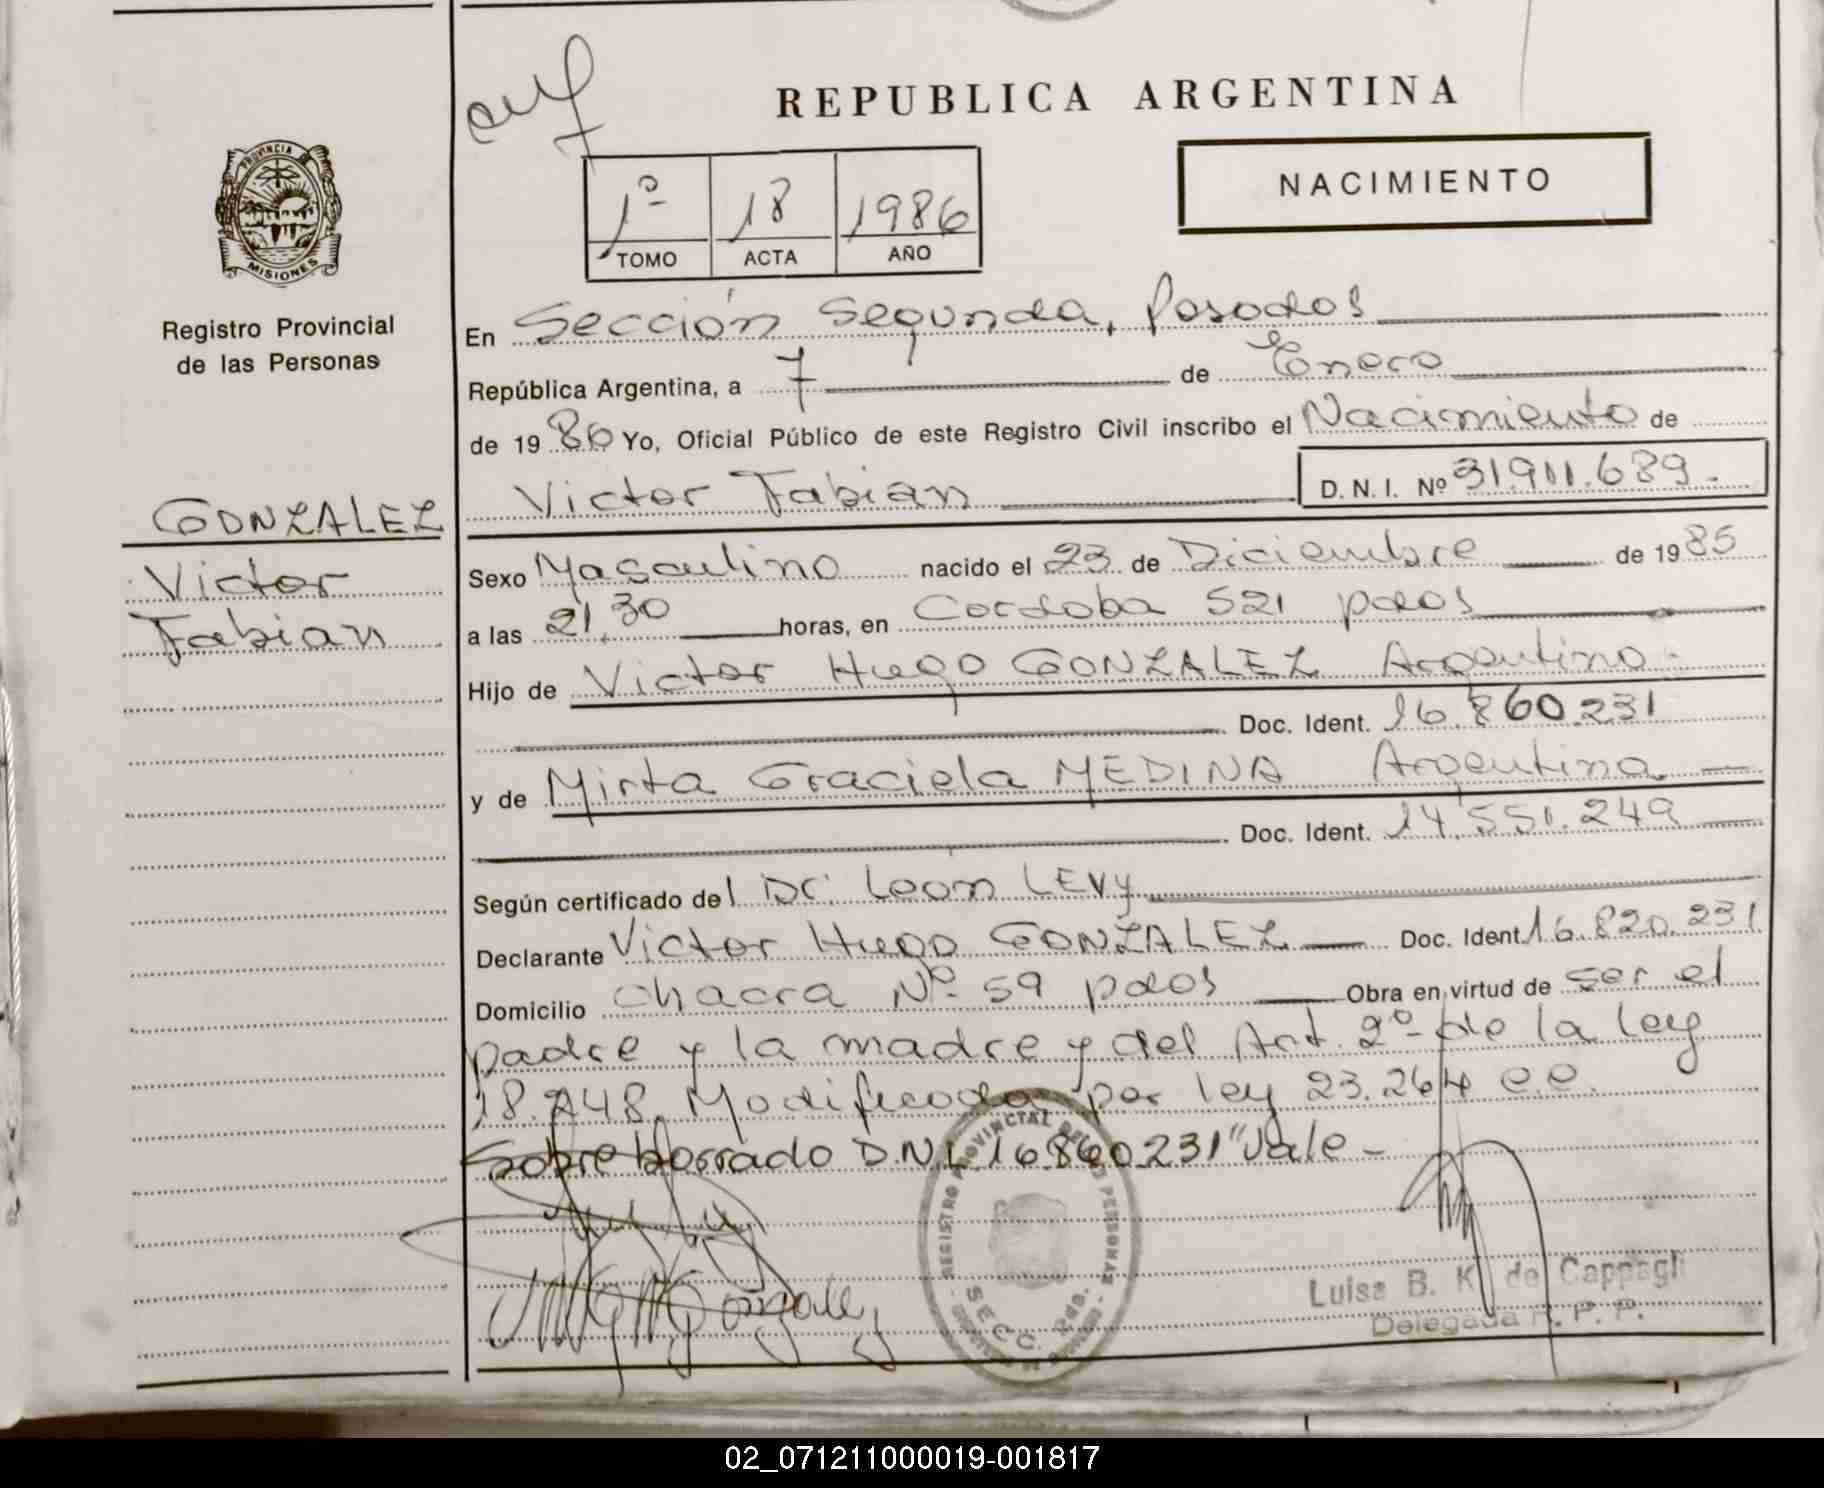 REPUBLICA ARGENTINA
PROVINCIA DE
MISIONES
Registro Provincial
de las Personas
1º 18 1986
TOMO ACTA AÑO
NACIMIENTO
En Sección Segunda, Posadas
República Argentina, a 7 de Enero
de 1986 Yo, Oficial Público de este Registro Civil inscribo el Nacimiento de
Victor Fabian D.N.I. Nº 31.911.689.-
GONZALEZ
Victor
Fabian
Sexo Masculino nacido el 23 de Diciembre de 1985
a las 21,30 horas, en Cordoba 521 pdas
Hijo de Victor Hugo GONZALEZ Argentino-
Doc. Ident. 16.860.231
y de Mirta Graciela MEDINA Argentina
Doc. Ident. 14.551.249
Según certificado del Dr. Leon LEVY
Declarante Victor Hugo GONZALEZ Doc. Ident. 16.820.231
Domicilio chacra Nº 59 pdas Obra en virtud de ser el
padre y la madre y del Art. 2º de la ley
18.248. Modificada por ley 23.264 e.e.
Sobre borrado D.N.I. 16.860.231" Vale-
REGISTRO PROVINCIAL DE LAS PERSONAS
SECC. 2da.
Luisa B. K. de Cappagli
Delegada R. P. P.
02_071211000019-001817